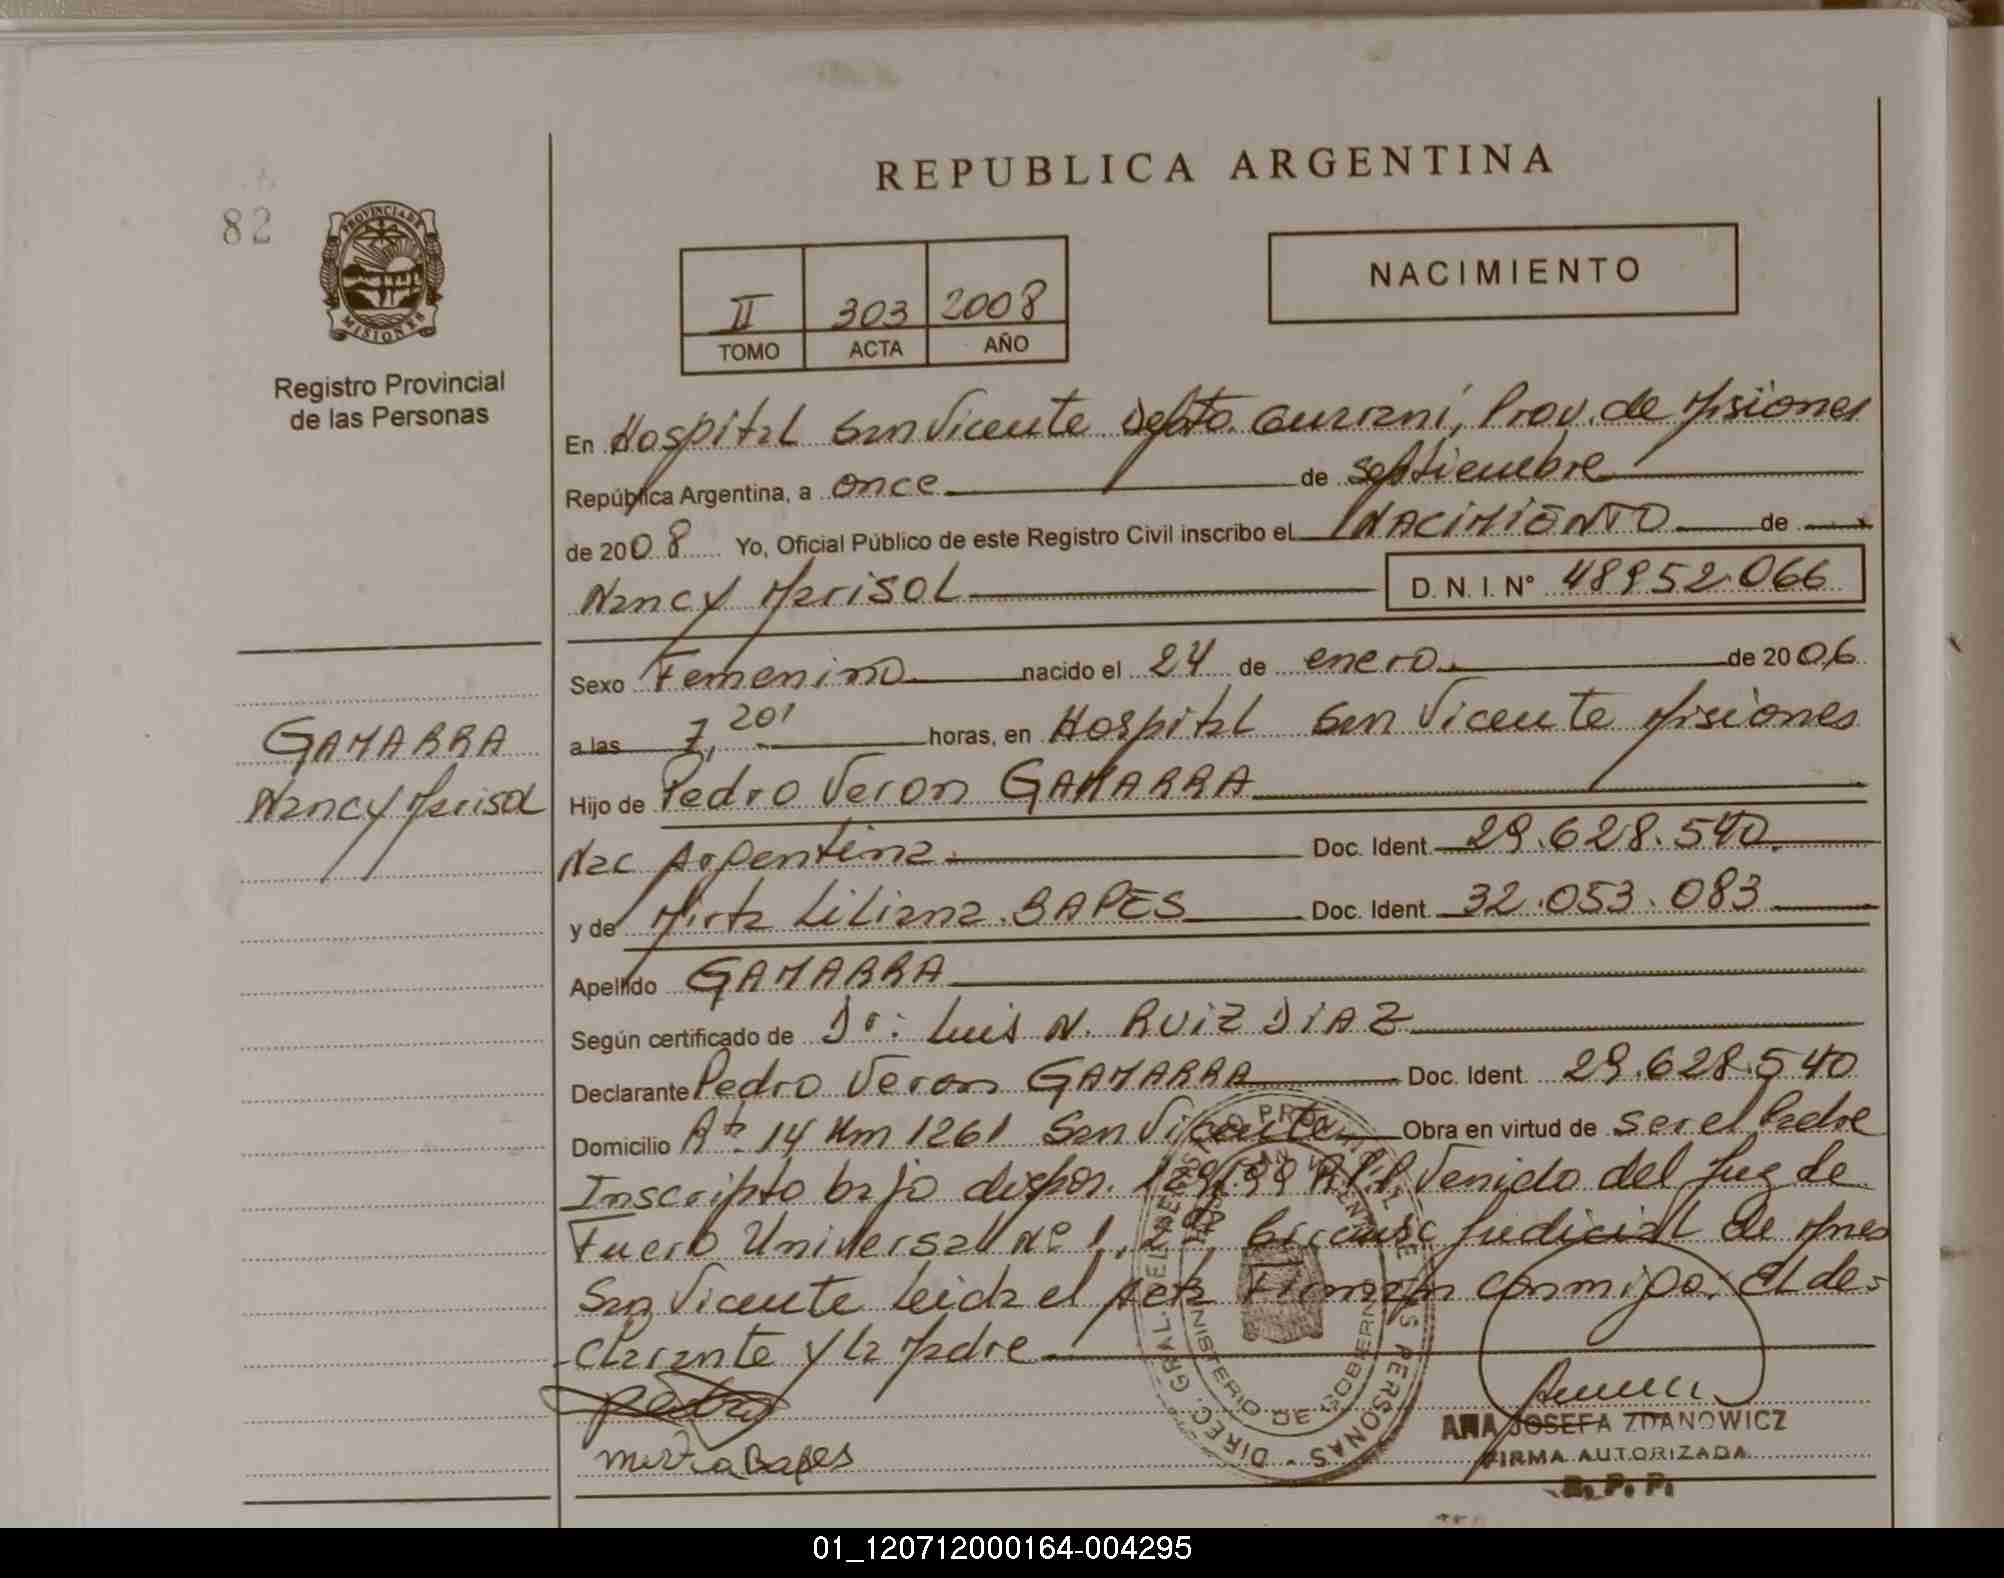 REPUBLICA ARGENTINA
82
PROVINCIA DE
MISIONES
Registro Provincial
de las Personas
II 303 2008
TOMO ACTA AÑO
NACIMIENTO
En Hospital San Vicente Depto. Guaraní, Prov. de Misiones
República Argentina, a once de Septiembre
de 2008 Yo, Oficial Público de este Registro Civil inscribo el NACIMIENTO de
Nancy Marisol D. N. I. N° 48952.066
Sexo Femenino nacido el 24 de enero de 2006
GAMARRA
Nancy Marisol
a las 7,20' horas, en Hospital San Vicente Misiones
Hijo de Pedro Veron GAMARRA
Nac Argentina Doc. Ident. 29.628.540
y de Mirta Liliana BAPES Doc. Ident. 32.053.083
Apellido GAMARRA
Según certificado de Dr: Luis N. RUIZ DIAZ
Declarante Pedro Veron GAMARRA Doc. Ident. 29.628.540
Domicilio Rta 14 Km 1261 San Vicente Obra en virtud de ser el Padre
Inscripto bajo dispos. 129/99 R.P.P Venido del Juz de
Fuero Universal N° 1, 2da Circunsc Judicial de Mnes
San Vicente Leida el Acta Firman conmigo: el de-
clarante y la Madre
Pedro
Mirta Bapes
ANA JOSEFA ZDANOWICZ
FIRMA AUTORIZADA
R. P. P.
DIREC. GRAL. DEL REGISTRO PROVINCIAL DE LAS PERSONAS
MINISTERIO DE GOBIERNO
01_120712000164-004295